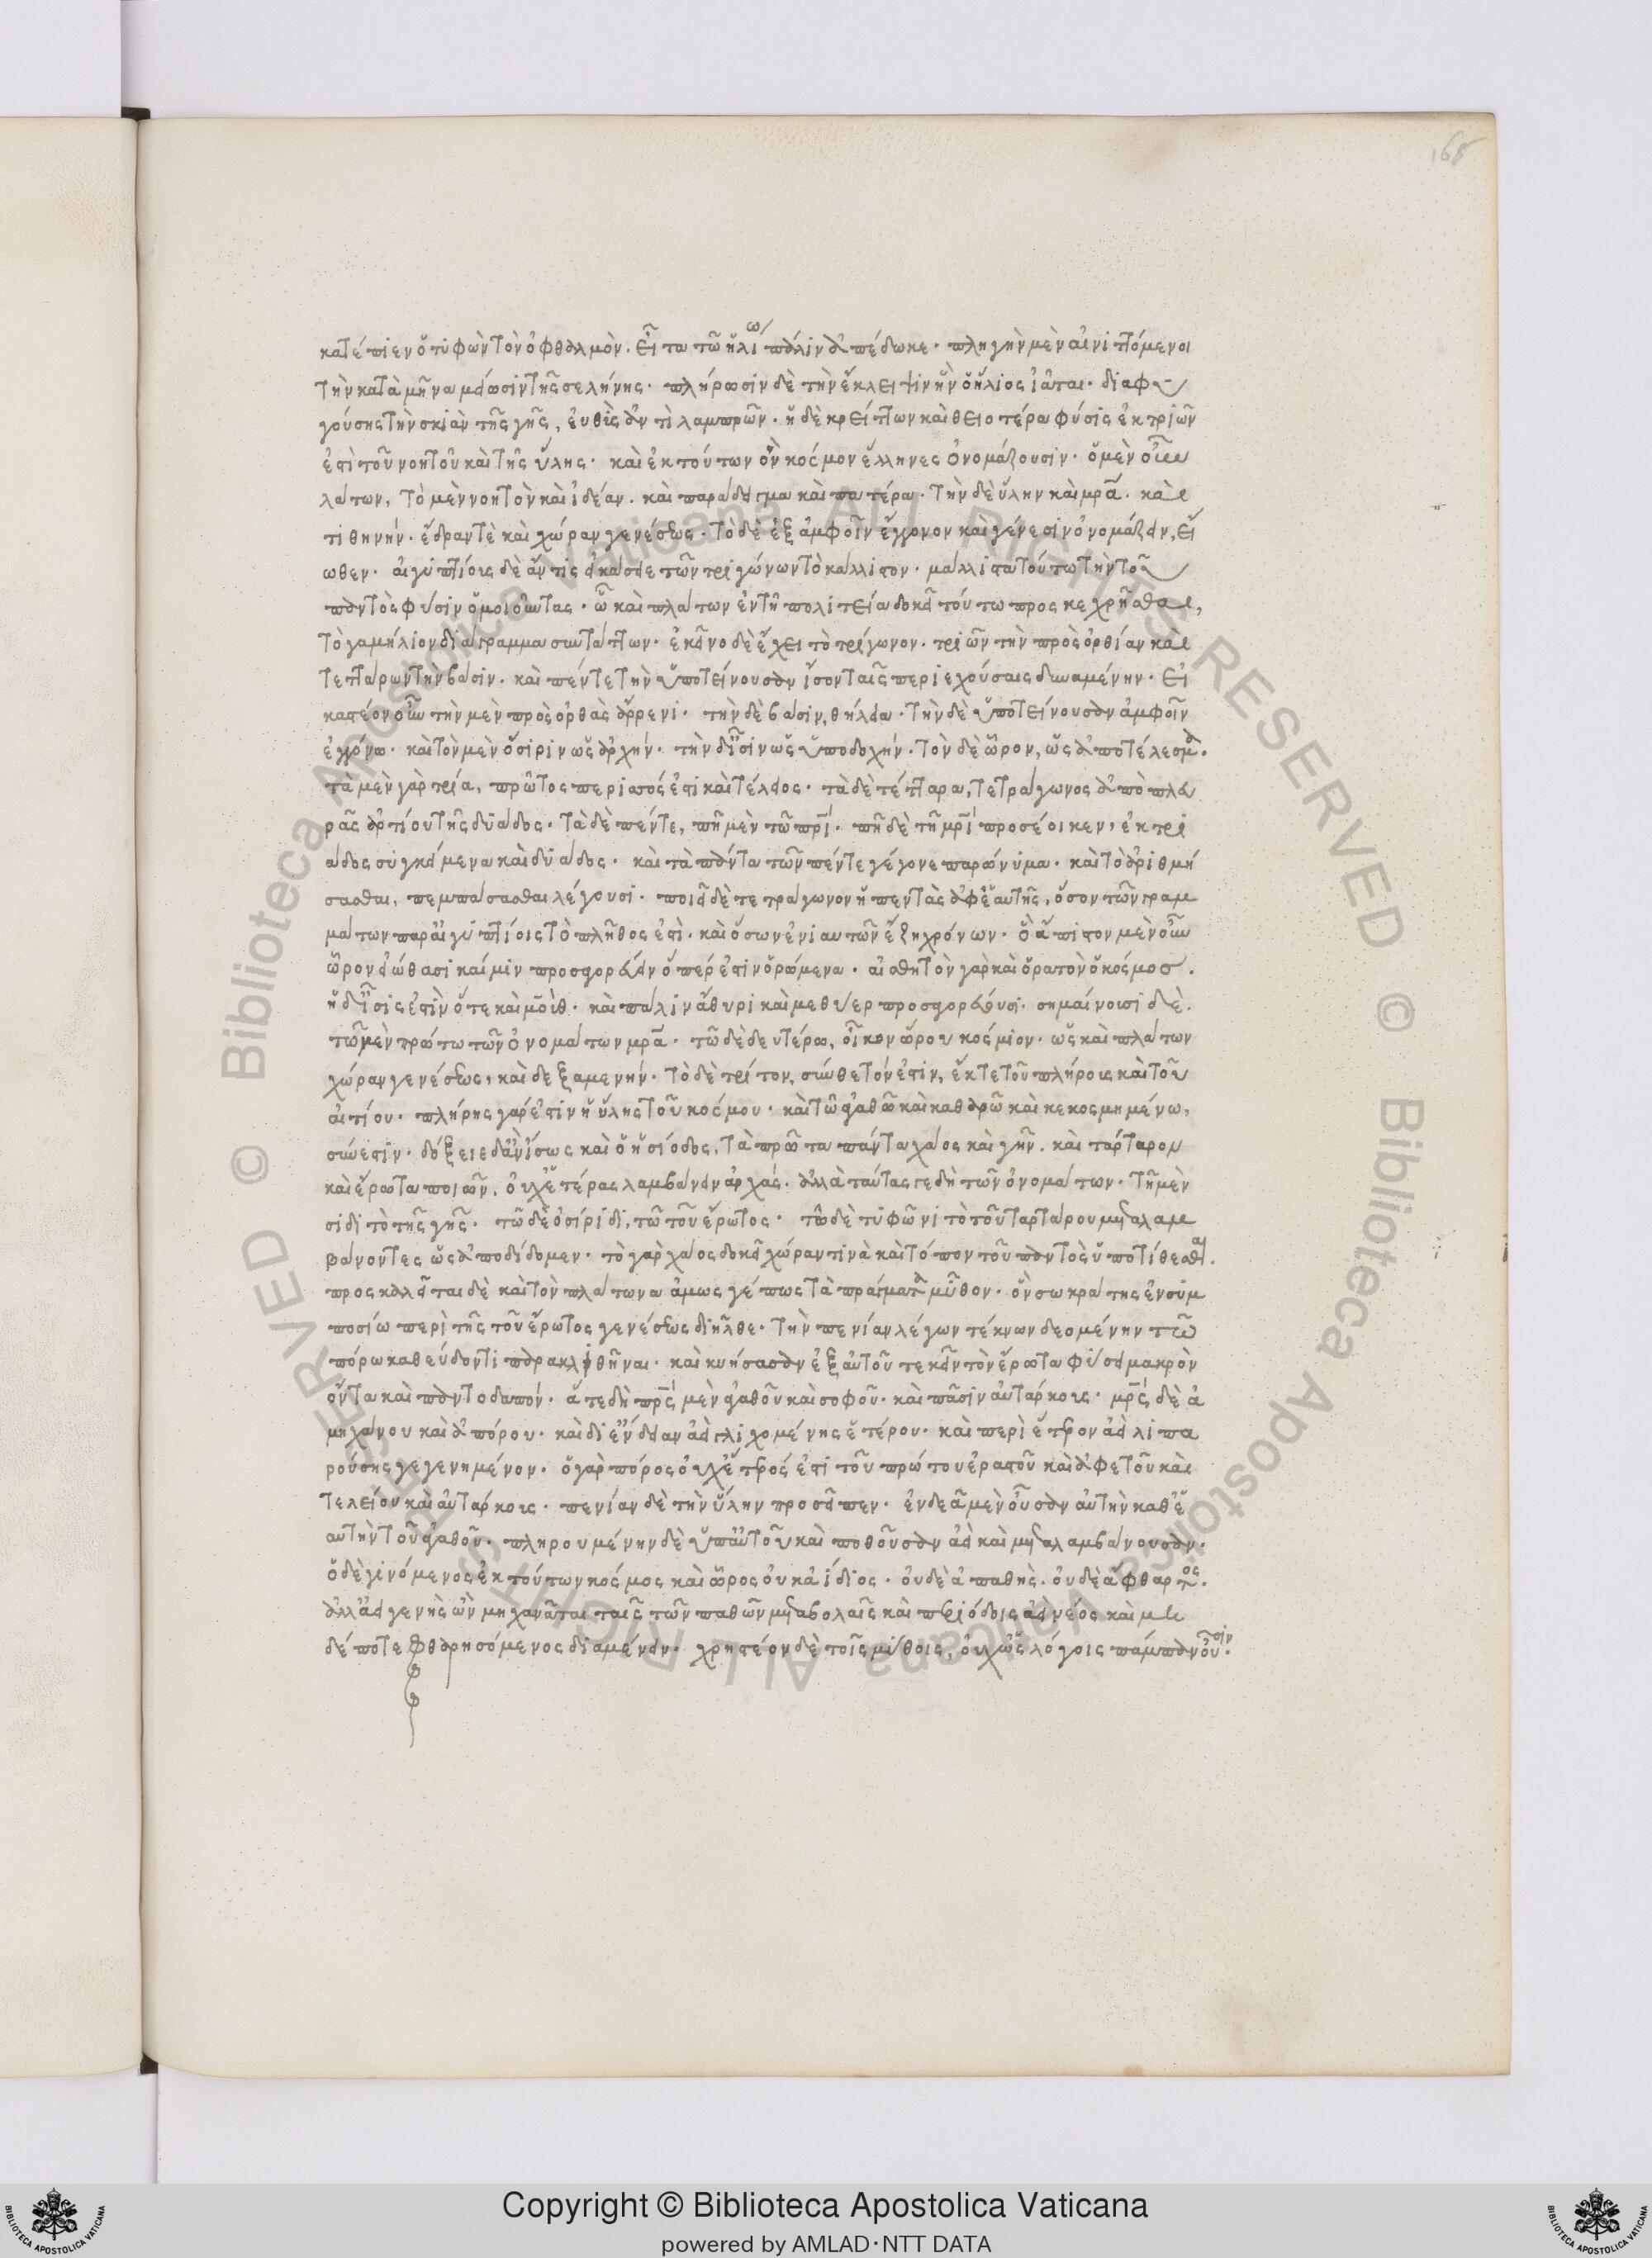 168
κατέπιεν ὁ τυφὼν τὸν ὀφθαλμὸν. εἶτα τῶ ἡλίω πάλιν ἀπέδωκε· πληγὴν μὲν αἰνιττόμενοι
τὴν κατὰ μῆνα μείωσιν τῆς σελήνης· πλήρωσιν δὲ τὴν ἔκλειψιν ἣν ὁ ἥλιος ἰᾶται· διαφυ
γούσης τὴν σκιὰν τῆς γῆς, ἐυθὶς ἀντιλαμπρῶν. ἡ δὲ κρείττων καὶ θειοτέρα φύσις ἐκ τριῶν
ἐστὶ τοῦ νοητοῦ καὶ τῆς ὕλης· καὶ ἐκ τούτων ὃν κόσμον ἕλληνες ὀνομάζουσιν. ὁ μὲν οὖν
λάτων, τὸ μὲν νοητὸν καὶ ἰδέαν. καὶ παράδειγμα καὶ πατέρα· τὴν δὲ ὕλην καὶ μρα. καὶ
τιθηνήν. ἕδραν τὲ καὶ χώραν γενέσεως. τὸ δὲ ἐξ ἀμφοῖν ἔγγονον καὶ γένεσιν ὀνομάζειν, εἴ
ωθεν· αἰγυπτίους δὲ ἄν τις εἰκάσειε τῶν τριγώνων τὸ κάλλιστον. μάλιστα τούτω τὴν τοῦ
παντὸς φύσιν ὁμοιοῦντας. ὧ καὶ πλάτων ἐν τῇ πολιτεία δοκεῖ τούτω προσκεχρῆσθαι,
τὸ γαμήλιον διάγραμμα συντάττων· ἐκεῖνο δὲ ἔχει τὸ τρίγωνον. τριῶν τὴν πρὸς ὀρθίαν καὶ
τεττάρων τὴν βάσιν. καὶ πέντε τὴν ὑποτείνουσαν ἴσον ταῖς περιεχούσαις δυναμένην. εἰ
καστέον οὖν τὴν μὲν πρὸς ὀρθὰς ἄρρενι. τὴν δὲ βάσιν, θήλεια. τὴν δὲ ὑποτείνουσαν ἀμφοῖν
ἐγγόνω. καὶ τὸν μὲν ὄσιριν ὡς ἀρχήν. τὴν δ' ἶσιν ὡς ὑποδοχήν. τὸν δὲ ὧρον, ὡς ἀποτέλεσμα.
τὰ μὲν γὰρ τρία, πρῶτος περισσός ἐστι καὶ τέλειος. τὰ δὲ τέτταρα, τετράγωνος ἀπὸ πλευ
ρᾶς ἀρτίου τῆς δυάδος. τὰ δὲ πέντε, πῆ μὲν τῶ πρι. πῆ δὲ τῇ μρι προσέοικεν, ἐκ τρι
άδος συγκείμενα καὶ δυάδος. καὶ τὰ πάντα τῶν πέντε γέγονε παρώνυμα. καὶ τὸ ἀριθμή
σασθαι, πεμπάσασθαι λέγουσι. ποιεῖ δὲ τετράγωνον ἡ πεντὰς ἀφ' ἑαυτῆς, ὅσον τῶν γραμ
μάτων παρ' αἰγυπτίοις τὸ πλῆθος ἐστὶ. καὶ ὅσων ἐνιαυτῶν ἔζη χρόνων. ὁ ἄπις τὸν μὲν οὖν
ὧρον εἰώθασι καὶ μὶν προσαγορεύειν ὅπερ ἐστὶν ὁρώμενα. αἰσθητὸν γὰρ καὶ ὁρατὸν ὁ κόσμος.
ἡ δ' ἶσις ἐστὶν ὅτε καὶ μοὶθ. καὶ πάλιν ἄθυρι καὶ μεθυερ προσαγορεύουσι. σημαίνουσι δὲ.
τῶ μὲν πρώτω τῶν ὀνομάτων μρα. τῶ δὲ δευτέρω, οἶκον ὥρου κόσμιον. ὡς καὶ πλάτων
χώραν γενέσεως, καὶ δεξαμενήν. τὸ δὲ τρίτον, σύνθετόν ἐστιν, ἔκ τε τοῦ πλήρους καὶ τοῦ
αἰτίου. πλήρης γάρ ἐστιν ἡ ὕλης τοῦ κόσμου. καὶ τῶ ἀγαθῶ καὶ καθαρῶ καὶ κεκοσμημένω,
σύνεστιν. δόξειε δ' ἂν ἴσως καὶ ὁ ἡσίοδος, τὰ πρῶτα πάντα χάος καὶ γῆν. καὶ τάρταρον
καὶ ἔρωτα ποιῶν. οὐχ ἑτέρας λαμβάνειν ἀρχάς. ἀλλὰ ταύτας γε δὴ τῶν ὀνομάτων. τῇ μὲν
σιδι τὸ τῆς γῆς. τῶ δὲ ὀσίριδι, τῶ τοῦ ἔρωτος. τῶ δὲ τυφῶνι τὸ τοῦ ταρτάρου μεταλαμ
βάνοντες ὡς ἀποδίδομεν. τὸ γὰρ χάος δοκεῖ χώραν τινὰ καὶ τόπον τοῦ παντὸς ὑποτίθεσθαι.
προσκαλεῖται δὲ καὶ τὸν πλάτωνα ἀμως γέ πως τὰ πράγματα μῦθον. ὃν σωκράτης ἐν συμ
ποσίω περὶ τῆς τοῦ ἔρωτος γενέσεως διῆλθε. τὴν πενίαν λέγων τέκνων δεομένην τῶ
πόρω καθεύδοντι παρακλιθῆναι. καὶ κυήσασαν ἐξ αὐτοῦ τεκεῖν τὸν ἔρωτα φύσει μακρὸν
ὄντα καὶ παντοδαπόν. ἅτε δὴ πρς μὲν ἀγαθοῦ καὶ σοφοῦ. καὶ πᾶσιν αὐτάρκους. μρς δὲ ἀ
μηχάνου καὶ ἀπόρου. καὶ δι' ἔνδειαν ἀεὶ γλιχομένης ἑτέρου. καὶ περὶ ἕτερον ἀεὶ λιπα
ρούσης γεγενημένον. ὁ γὰρ πόρος οὐχ ἕτερός ἐστι τοῦ πρώτου ἐραστοῦ καὶ ἀφετοῦ καὶ
τελείου καὶ αὐτάρκους. πενίαν δὲ τὴν ὕλην προσεῖπεν. ἐνδεᾶ μὲν οὖσαν αὐτὴν καθ' ἑ
αυτὴν τοῦ ἀγαθοῦ. πληρουμένην δὲ ὑπ' αὐτοῦ καὶ ποθοῦσαν ἀεὶ καὶ μεταλαμβάνουσαν.
ὁ δὲ γινόμενος ἐκ τούτων κόσμος καὶ ὧρος οὐκ ἀίδιος. οὐδὲ ἀπαθὴς. οὐδὲ ἄφθαρτος.
ἀλλ' ἀειγενὴς ὢν μηχανᾶται ταῖς τῶν παθῶν μεταβολαῖς καὶ περιόδοις ἀεὶ νέος καὶ μη
δέποτε φθαρησόμενος διαμένειν. χρηστέον δὲ τοῖς μύθοις, οὐχ ὡς λόγοις πάμπαν οὖσιν.
Copyright © Biblioteca Apostolica Vaticana
powered by AMLAD·NTT DATA